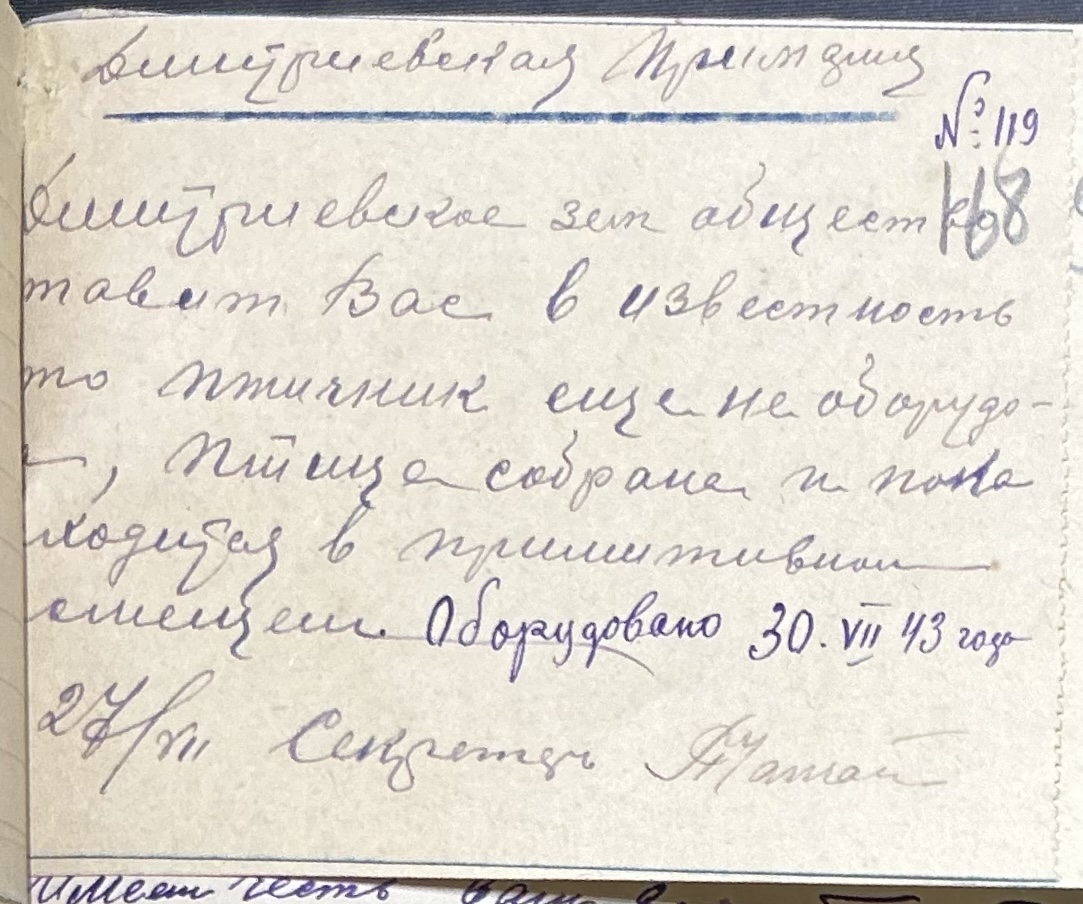 Дмитриевская Примэрия
№ 119
168
Дмитриевское зем общество
тавит Вас в известность
то птичник еще не оборудо-
, птица собрана и пока
ходится в примитивном
омещен. Оборудовано 30.VII 43 года
27/VII Секретарь
имеет честь